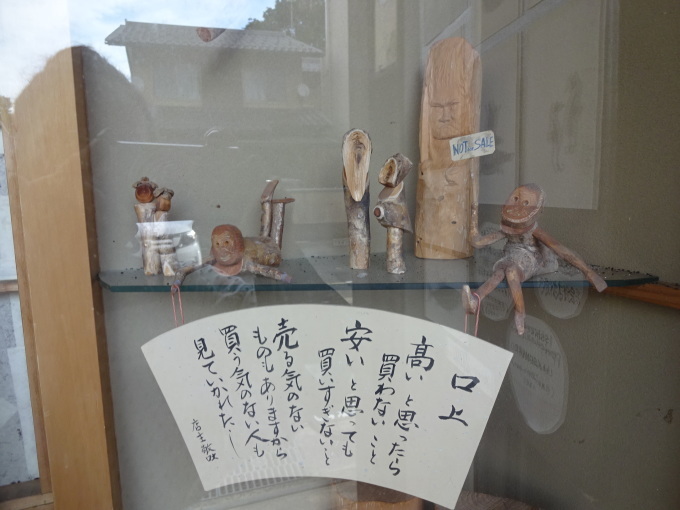 口上
高いと思ったら
買わないこと
安いと思っても
買いすぎないこと
売る気のない
ものもありますから
買う気のない人も
見ていかれたし
店主敬白
NOT SALE